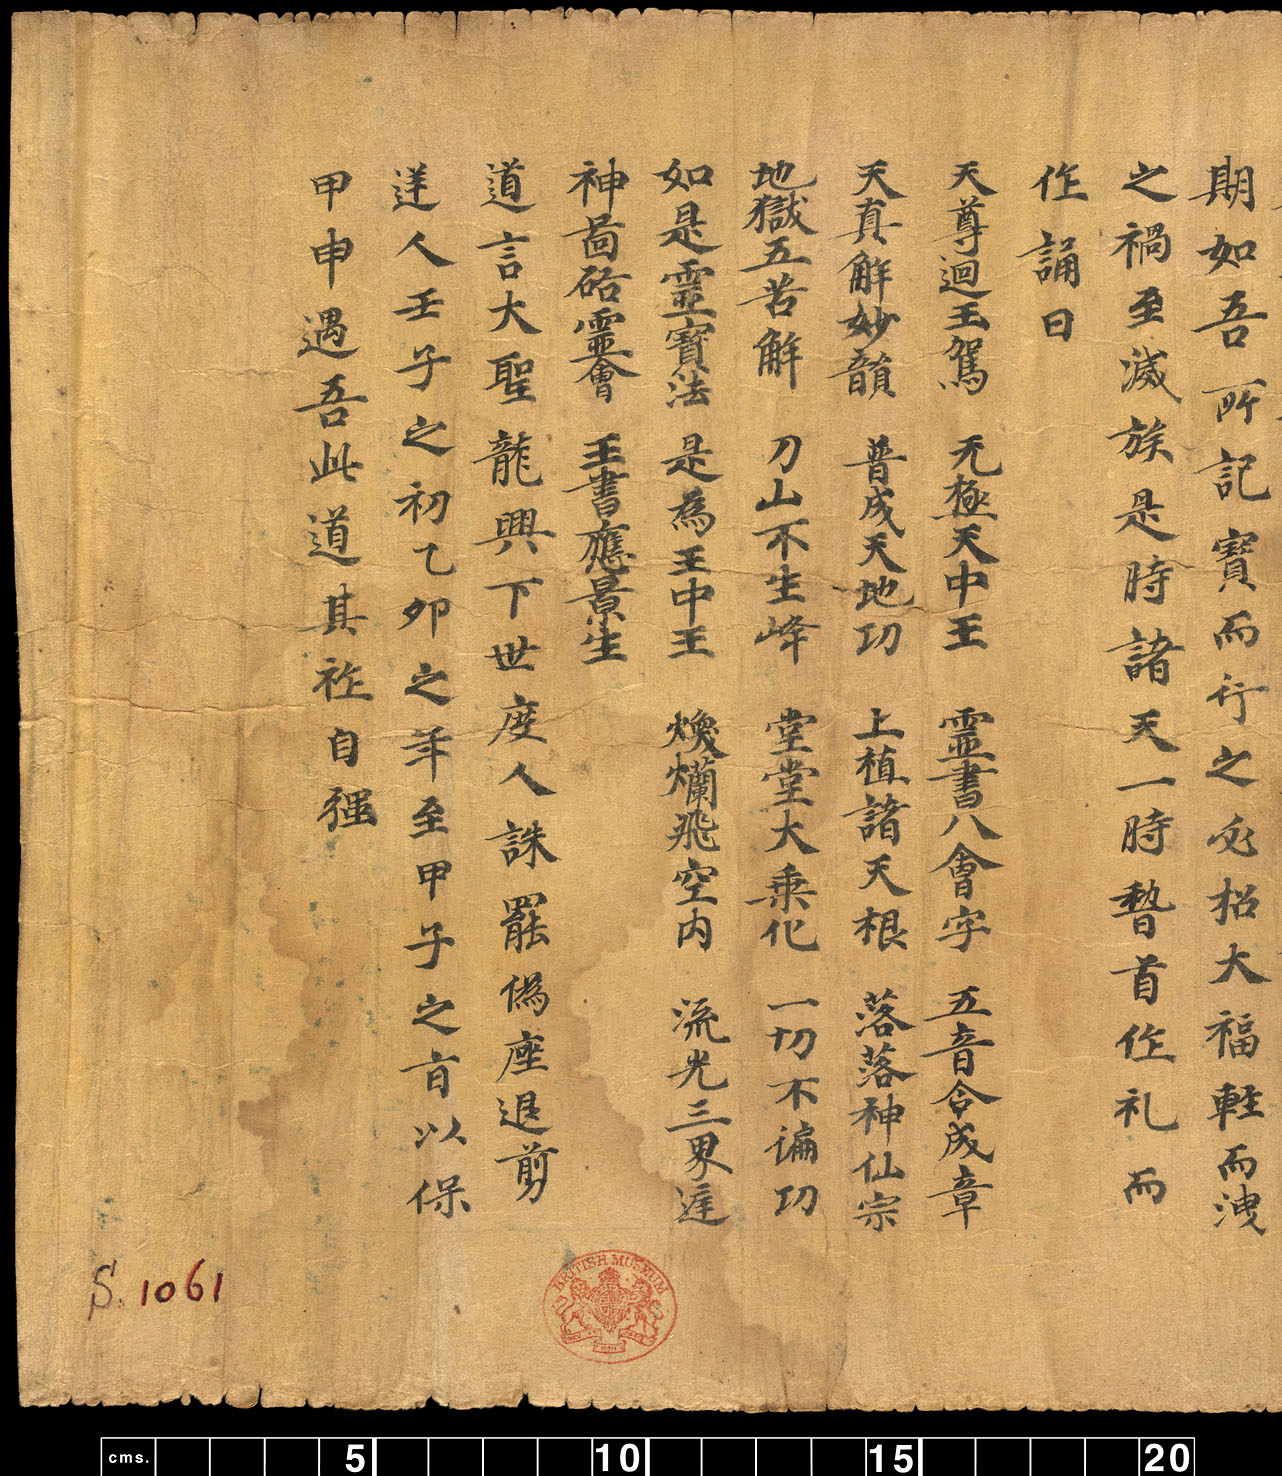 期如吾所記寶而行之必招大福軽而洩
之禍至滅族是時諸天一時嫛首作礼而
作誦曰
天尊迴玉駕 无極天中王 靈書八會字 五音合成章
天真解妙韻 普成天地功 上植諸天根 落落神仙宗
地獄五苦解 刀山不生峰 堂堂大乘化 一切不遍功
如是靈寶法 是為王中王 煥爛飛空内 流光三界庭
神啚硌靈會 玉書應景生
道言大聖龍興下世度人誅罷偽座退剪
逆人壬子之初乙卯之年至甲子之旬以保
甲申遇吾此道其祚自强
S. 1061
BRITISH MUSEUM
cms. 5 10 15 20